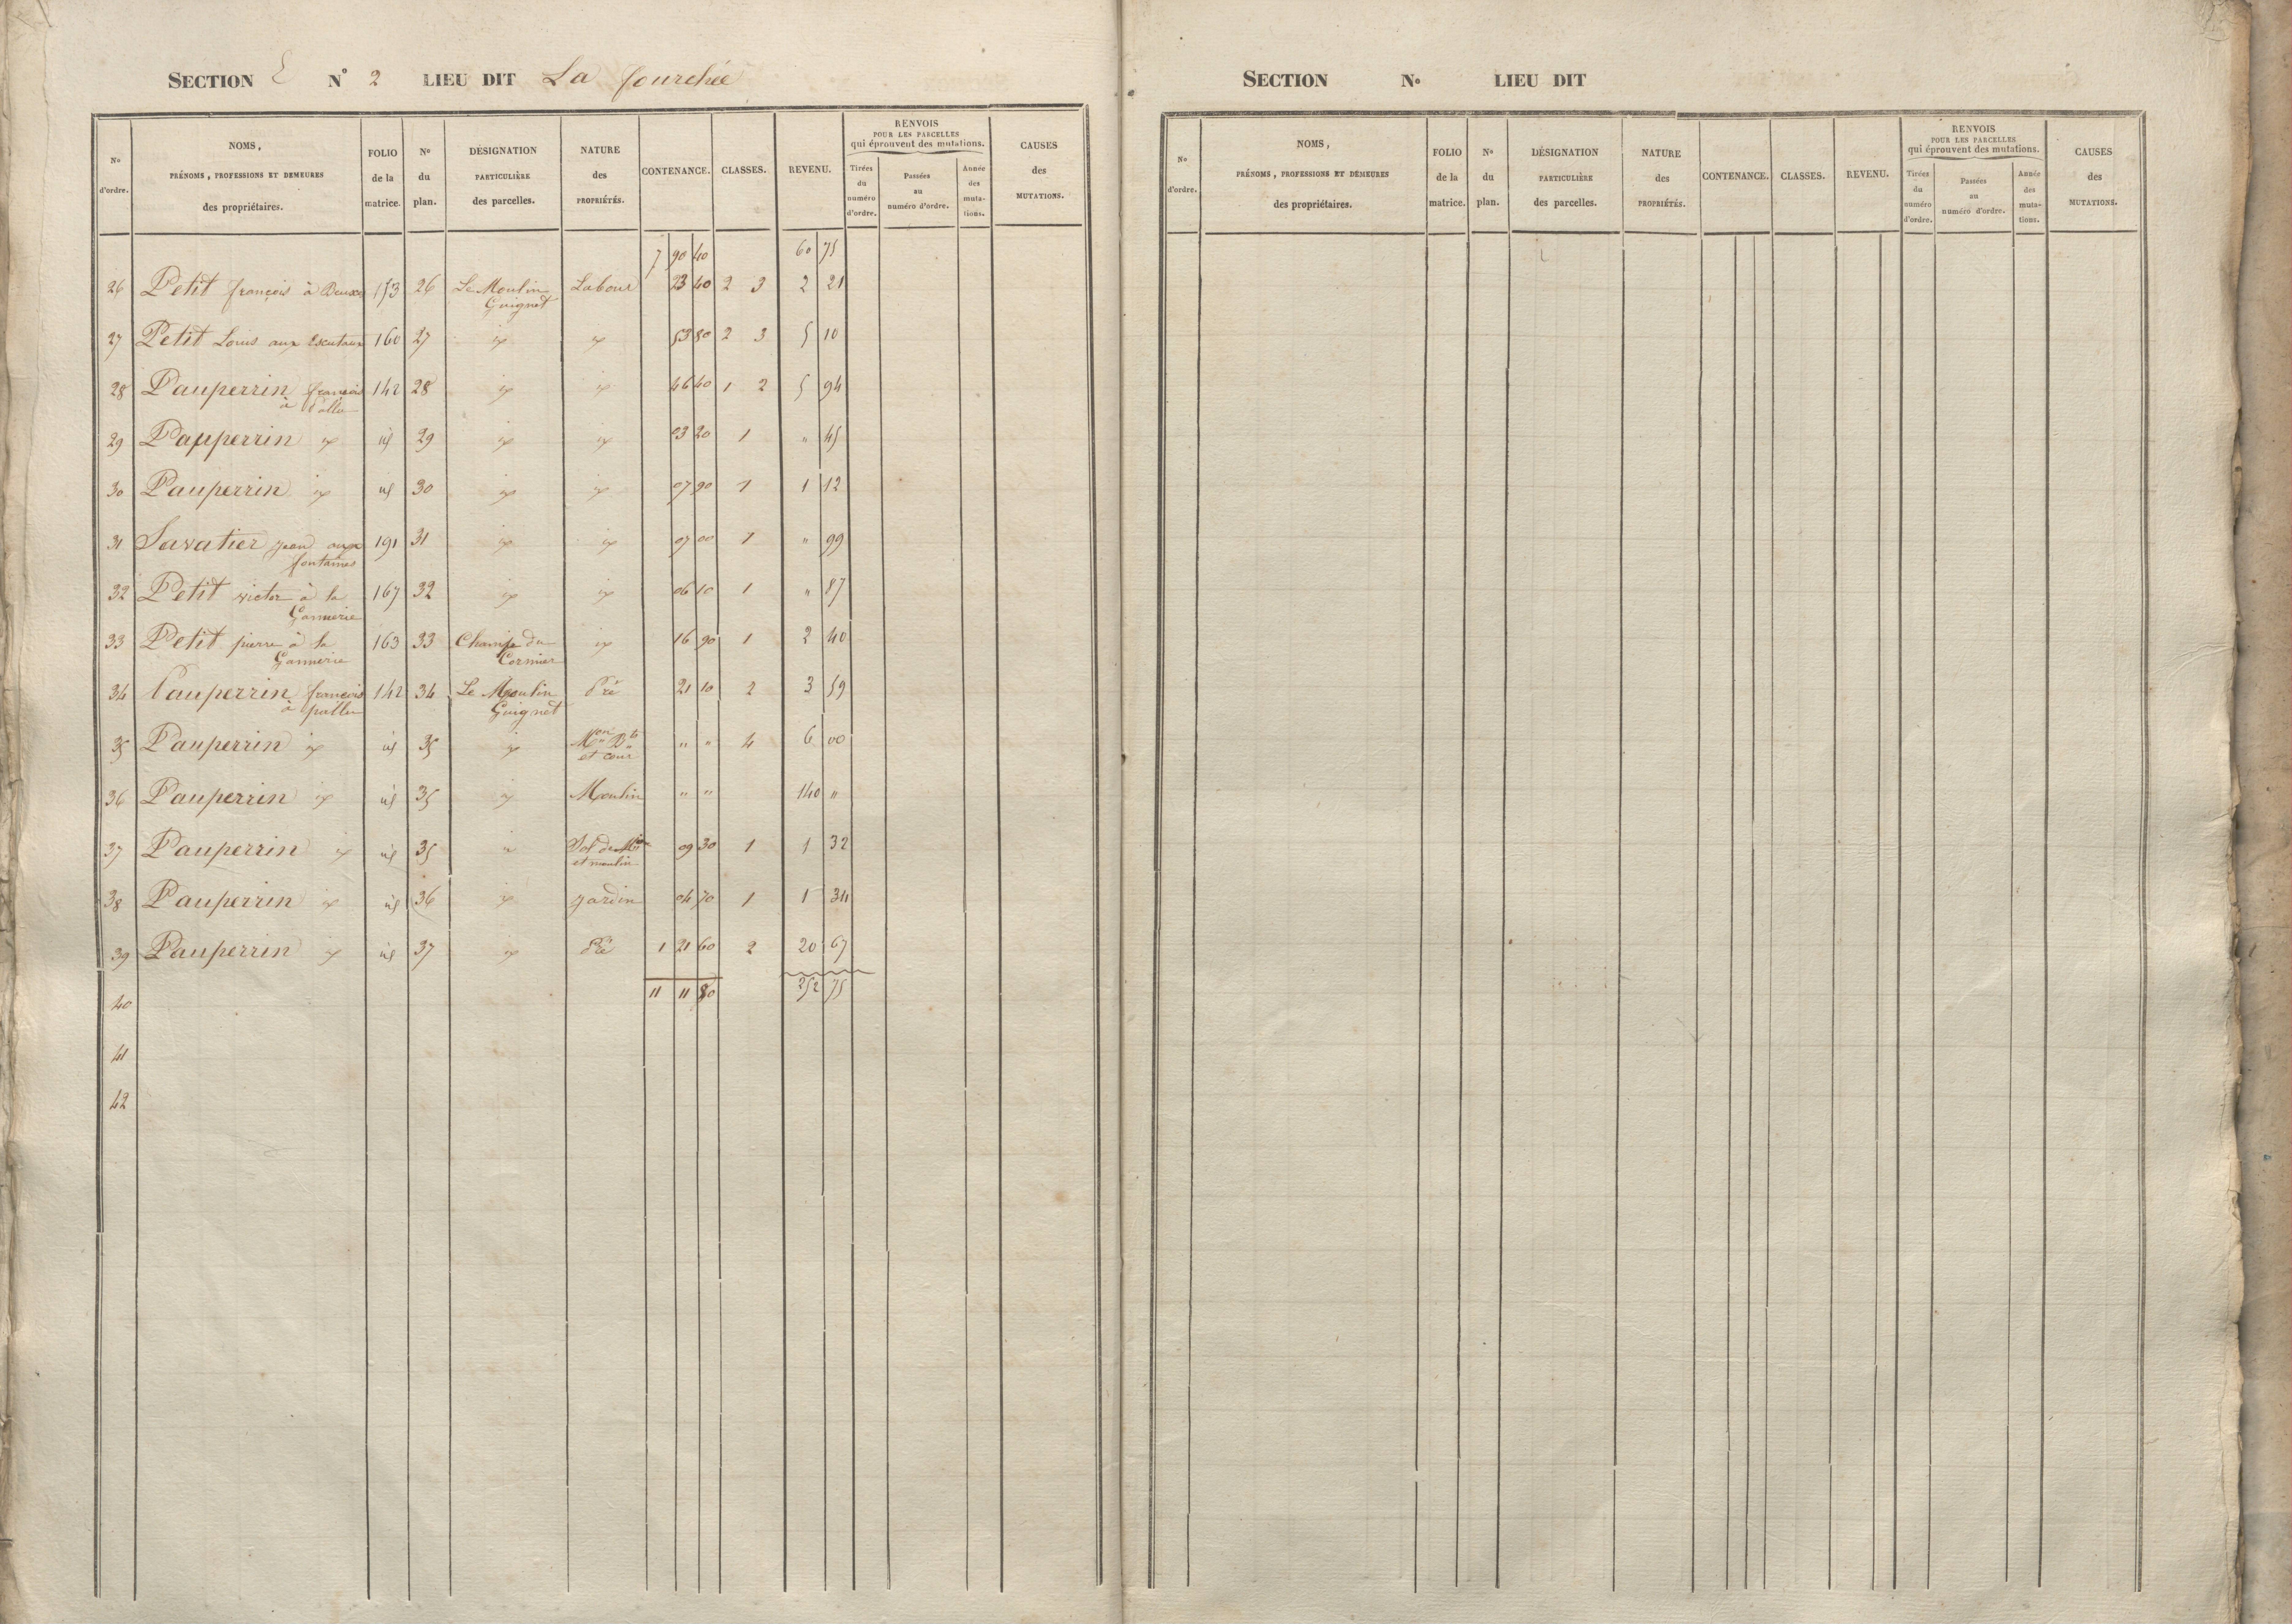 SECTION E N° 2 LIEU DIT La fourchée
N° d'ordre. NOMS, PRÉNOMS, PROFESSIONS ET DEMEURES des propriétaires. FOLIO de la matrice. N° du plan. DÉSIGNATION PARTICULIÈRE des parcelles. NATURE des PROPRIÉTÉS. CONTENANCE. CLASSES. REVENU. RENVOIS POUR LES PARCELLES qui éprouvent des mutations. Tirées du numéro d'ordre. Passées au numéro d'ordre. Année des mutations. CAUSES des MUTATIONS.
7 90 40 60 75
26 Petit françois à Beuxe 173 26 Le Moulin Guignet Labour 23 40 2 3 2 21
27 Petit Louis aux 160 27 id id 53 80 2 3 5 10
28 Pauperrin françois à Pallu 142 28 id id 46 40 1 2 5 94
29 Pauperrin id id 29 id id 03 20 1 " 45
30 Pauperrin id id 30 id id 07 90 1 1 12
31 Savatier jean aux fontaines 191 31 id id 07 00 1 " 99
32 Petit victor à la Gannerie 167 32 id id 06 10 1 " 87
33 Petit pierre à la Gannerie 163 33 Champ du Cormier id 16 90 1 2 40
34 Pauperrin françois à pallu 142 34 Le Moulin Guignet Pré 21 10 2 3 59
35 Pauperrin id id 35 id Mon Bt et cour " " 4 6 00
36 Pauperrin id id 35 id Moulin " " 140 "
37 Pauperrin id id 35 id Sol de Mon et moulin 09 30 1 1 32
38 Pauperrin id id 36 id jardin 04 70 1 1 34
39 Pauperrin id id 37 id Pré 1 21 60 2 20 67
40 11 11 80 252 75
41
42
SECTION N° LIEU DIT
N° d'ordre. NOMS, PRÉNOMS, PROFESSIONS ET DEMEURES des propriétaires. FOLIO de la matrice. N° du plan. DÉSIGNATION PARTICULIÈRE des parcelles. NATURE des PROPRIÉTÉS. CONTENANCE. CLASSES. REVENU. RENVOIS POUR LES PARCELLES qui éprouvent des mutations. Tirées du numéro d'ordre. Passées au numéro d'ordre. Année des mutations. CAUSES des MUTATIONS.